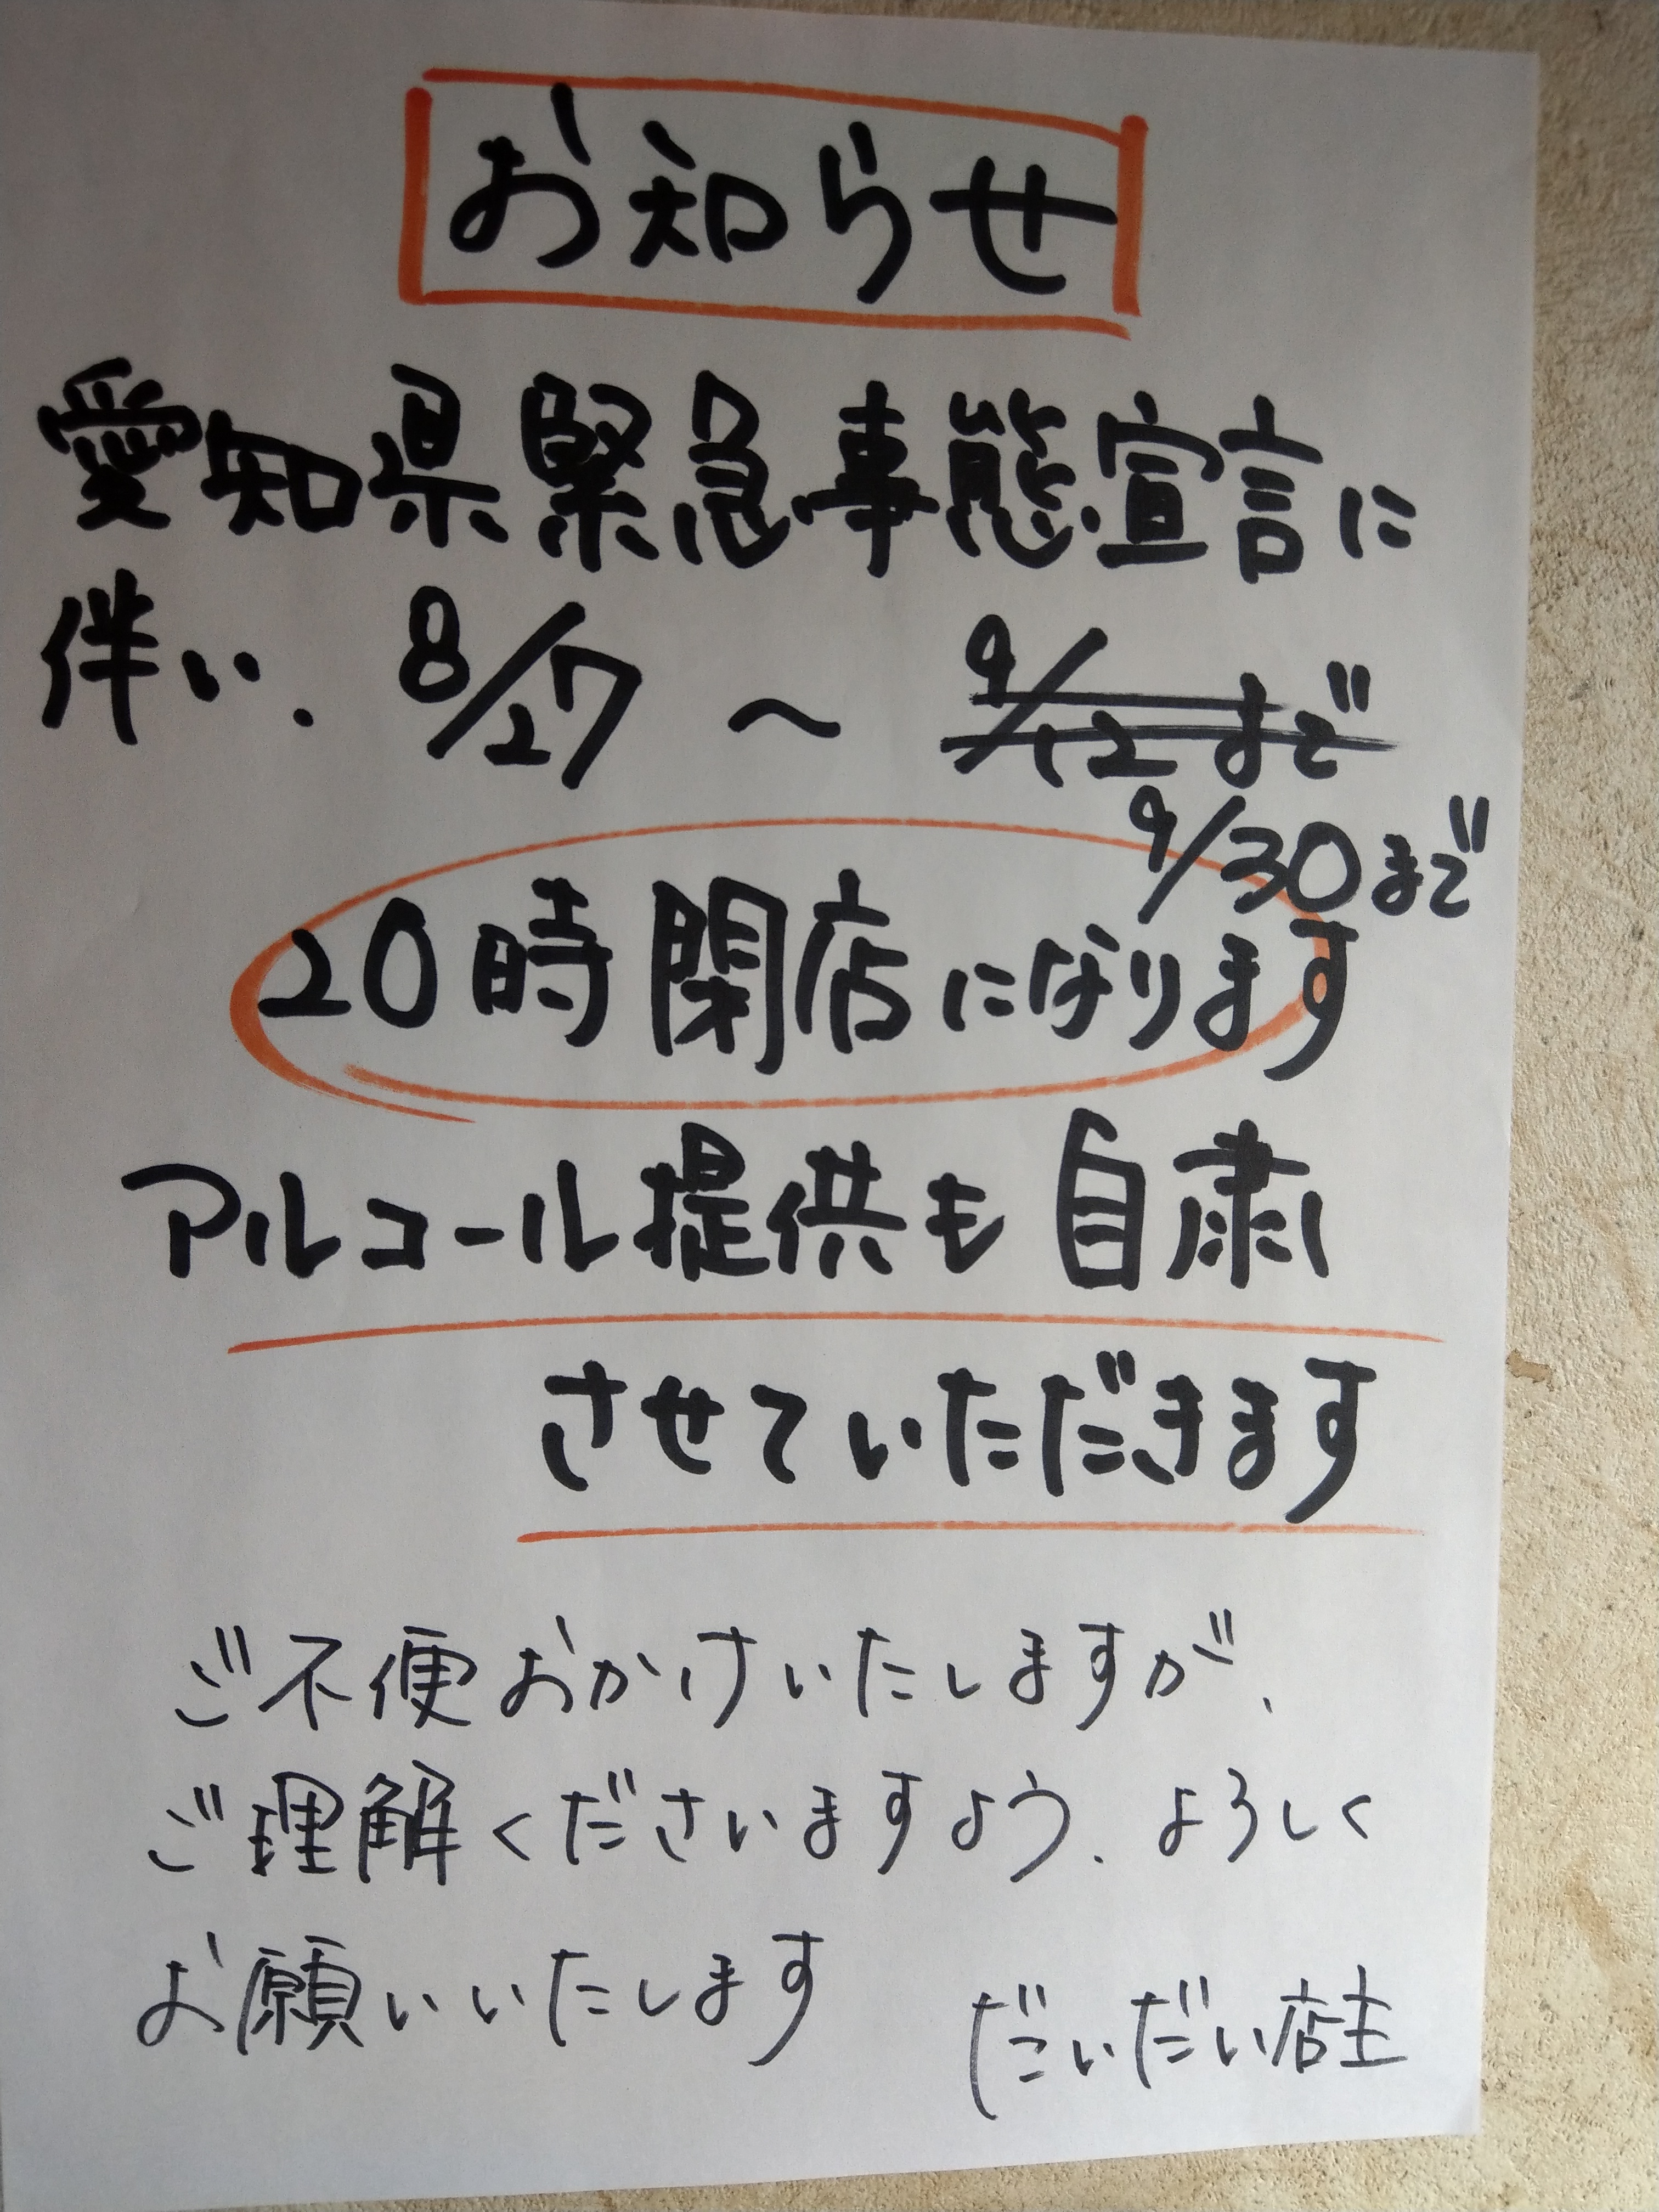 お知らせ
愛知県緊急事態宣言に
伴い、8/27 〜 9/12まで
9/30まで
20時閉店になります
アルコール提供も自粛
させていただきます
ご不便おかけいたしますが、
ご理解くださいますよう、よろしく
お願いいたします
だいだい店主